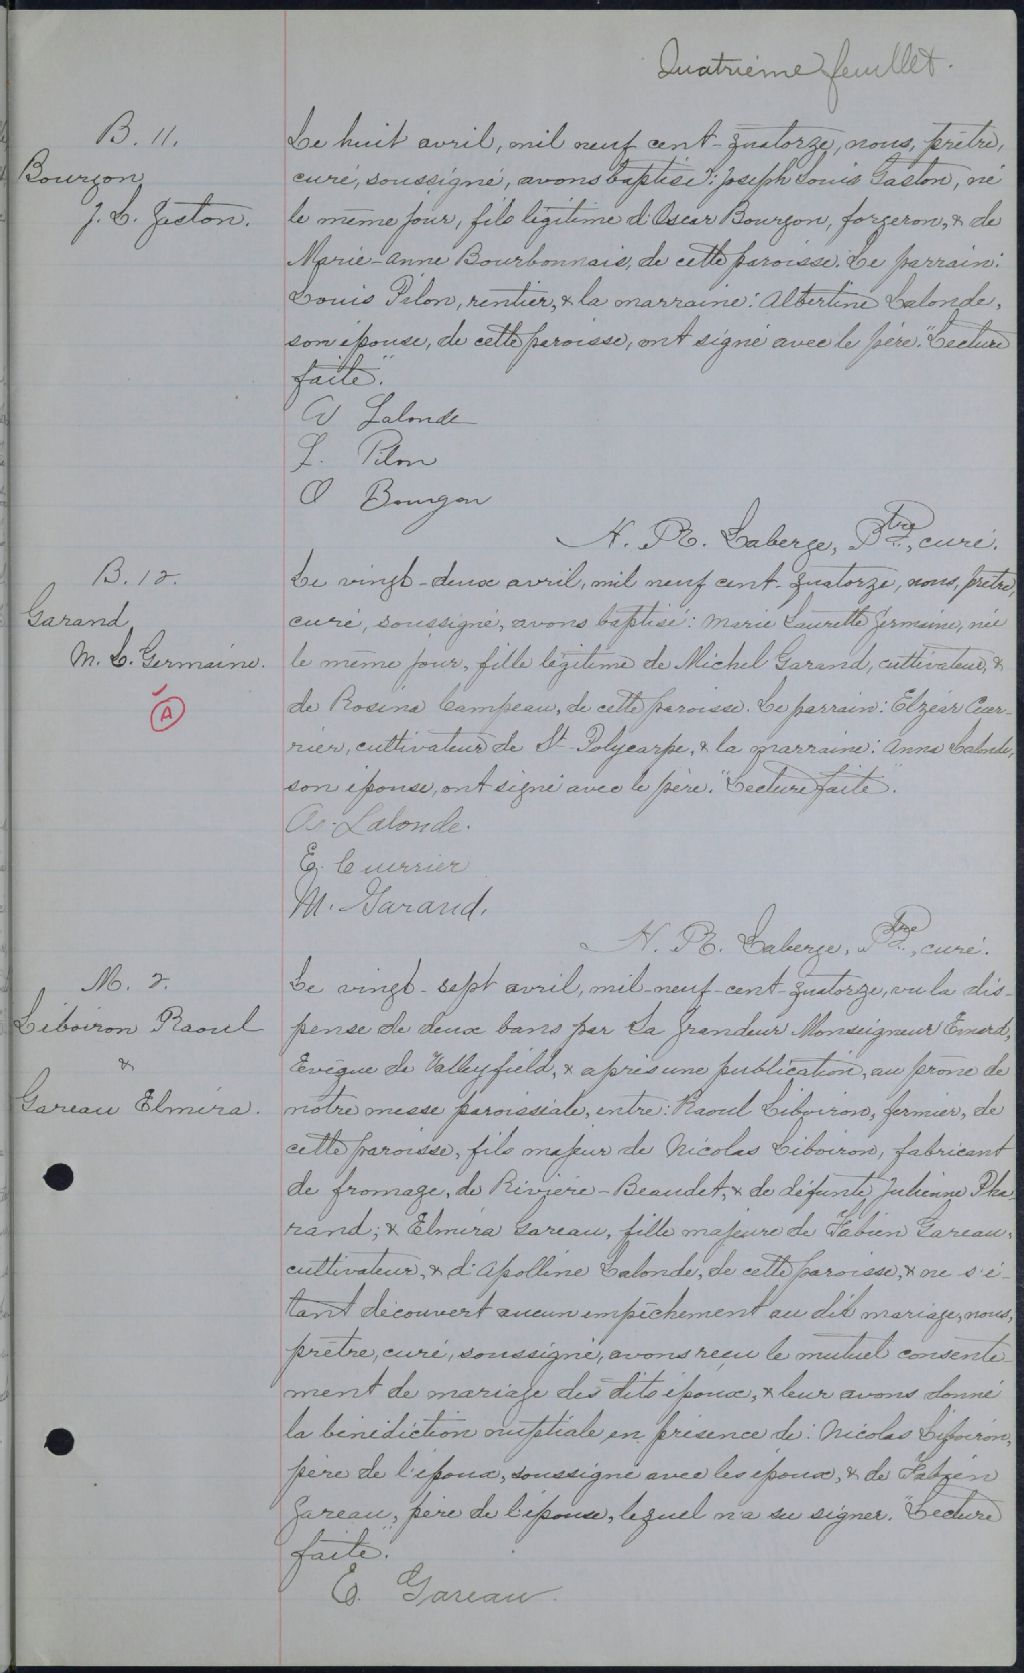 Quatrième feuillet.
B. 11.
Bourgon
J. L. Gaston.
Le huit avril, mil neuf cent-quatorze, nous, prêtre,
curé, soussigné, avons baptisé: Joseph Louis Gaston, né
le même jour, fils légitime d'Oscar Bourgon, forgeron, & de
Marie-Anne Bourbonnais, de cette paroisse. Le parrain:
Louis Pilon, rentier, & la marraine: Albertine Lalonde,
son épouse, de cette paroisse, ont signé avec le père. "Lecture
faite."
A Lalonde
L. Pilon
O Bourgon
N. Laberge, Ptre, curé.
B. 12.
Garand
M. L. Germaine.
A
Le vingt-deux avril, mil neuf cent-quatorze, nous, prêtre,
curé, soussigné, avons baptisé: Marie Laurette Germaine, née
le même jour, fille légitime de Michel Garand, cultivateur, &
de Rosina Campeau, de cette paroisse. Le parrain: Elzéar Cuer-
rier, cultivateur de St-Polycarpe, & la marraine: Anna Lalonde,
son épouse, ont signé avec le père. "Lecture faite".
A. Lalonde.
E. Cuerrier
M. Garand.
N. Laberge, Ptre, curé.
M. 2.
Liboiron Raoul
&
Gareau Elmira.
Le vingt-sept avril, mil-neuf-cent-quatorze, vu la dis-
pense de deux bans par Sa Grandeur Monseigneur Emard,
Evêque de Valleyfield, & après une publication, au prône de
notre messe paroissiale, entre: Raoul Liboiron, fermier, de
cette paroisse, fils majeur de Nicolas Liboiron, fabricant
de fromage, de Rivière-Beaudet, & de défunte Julienne Pha-
rand; & Elmira Gareau, fille majeure de Fabien Gareau,
cultivateur, & d'Apolline Lalonde, de cette paroisse, & ne s'é-
tant découvert aucun empêchement au dit mariage, nous,
prêtre, curé, soussigné, avons reçu le mutuel consente-
ment de mariage des dits époux, & leur avons donné
la bénédiction nuptiale en présence de: Nicolas Liboiron,
père de l'époux, soussigné avec les époux, & de Fabien
Gareau, père de l'épouse, lequel n'a su signer. "Lecture
faite."
E. Gareau.